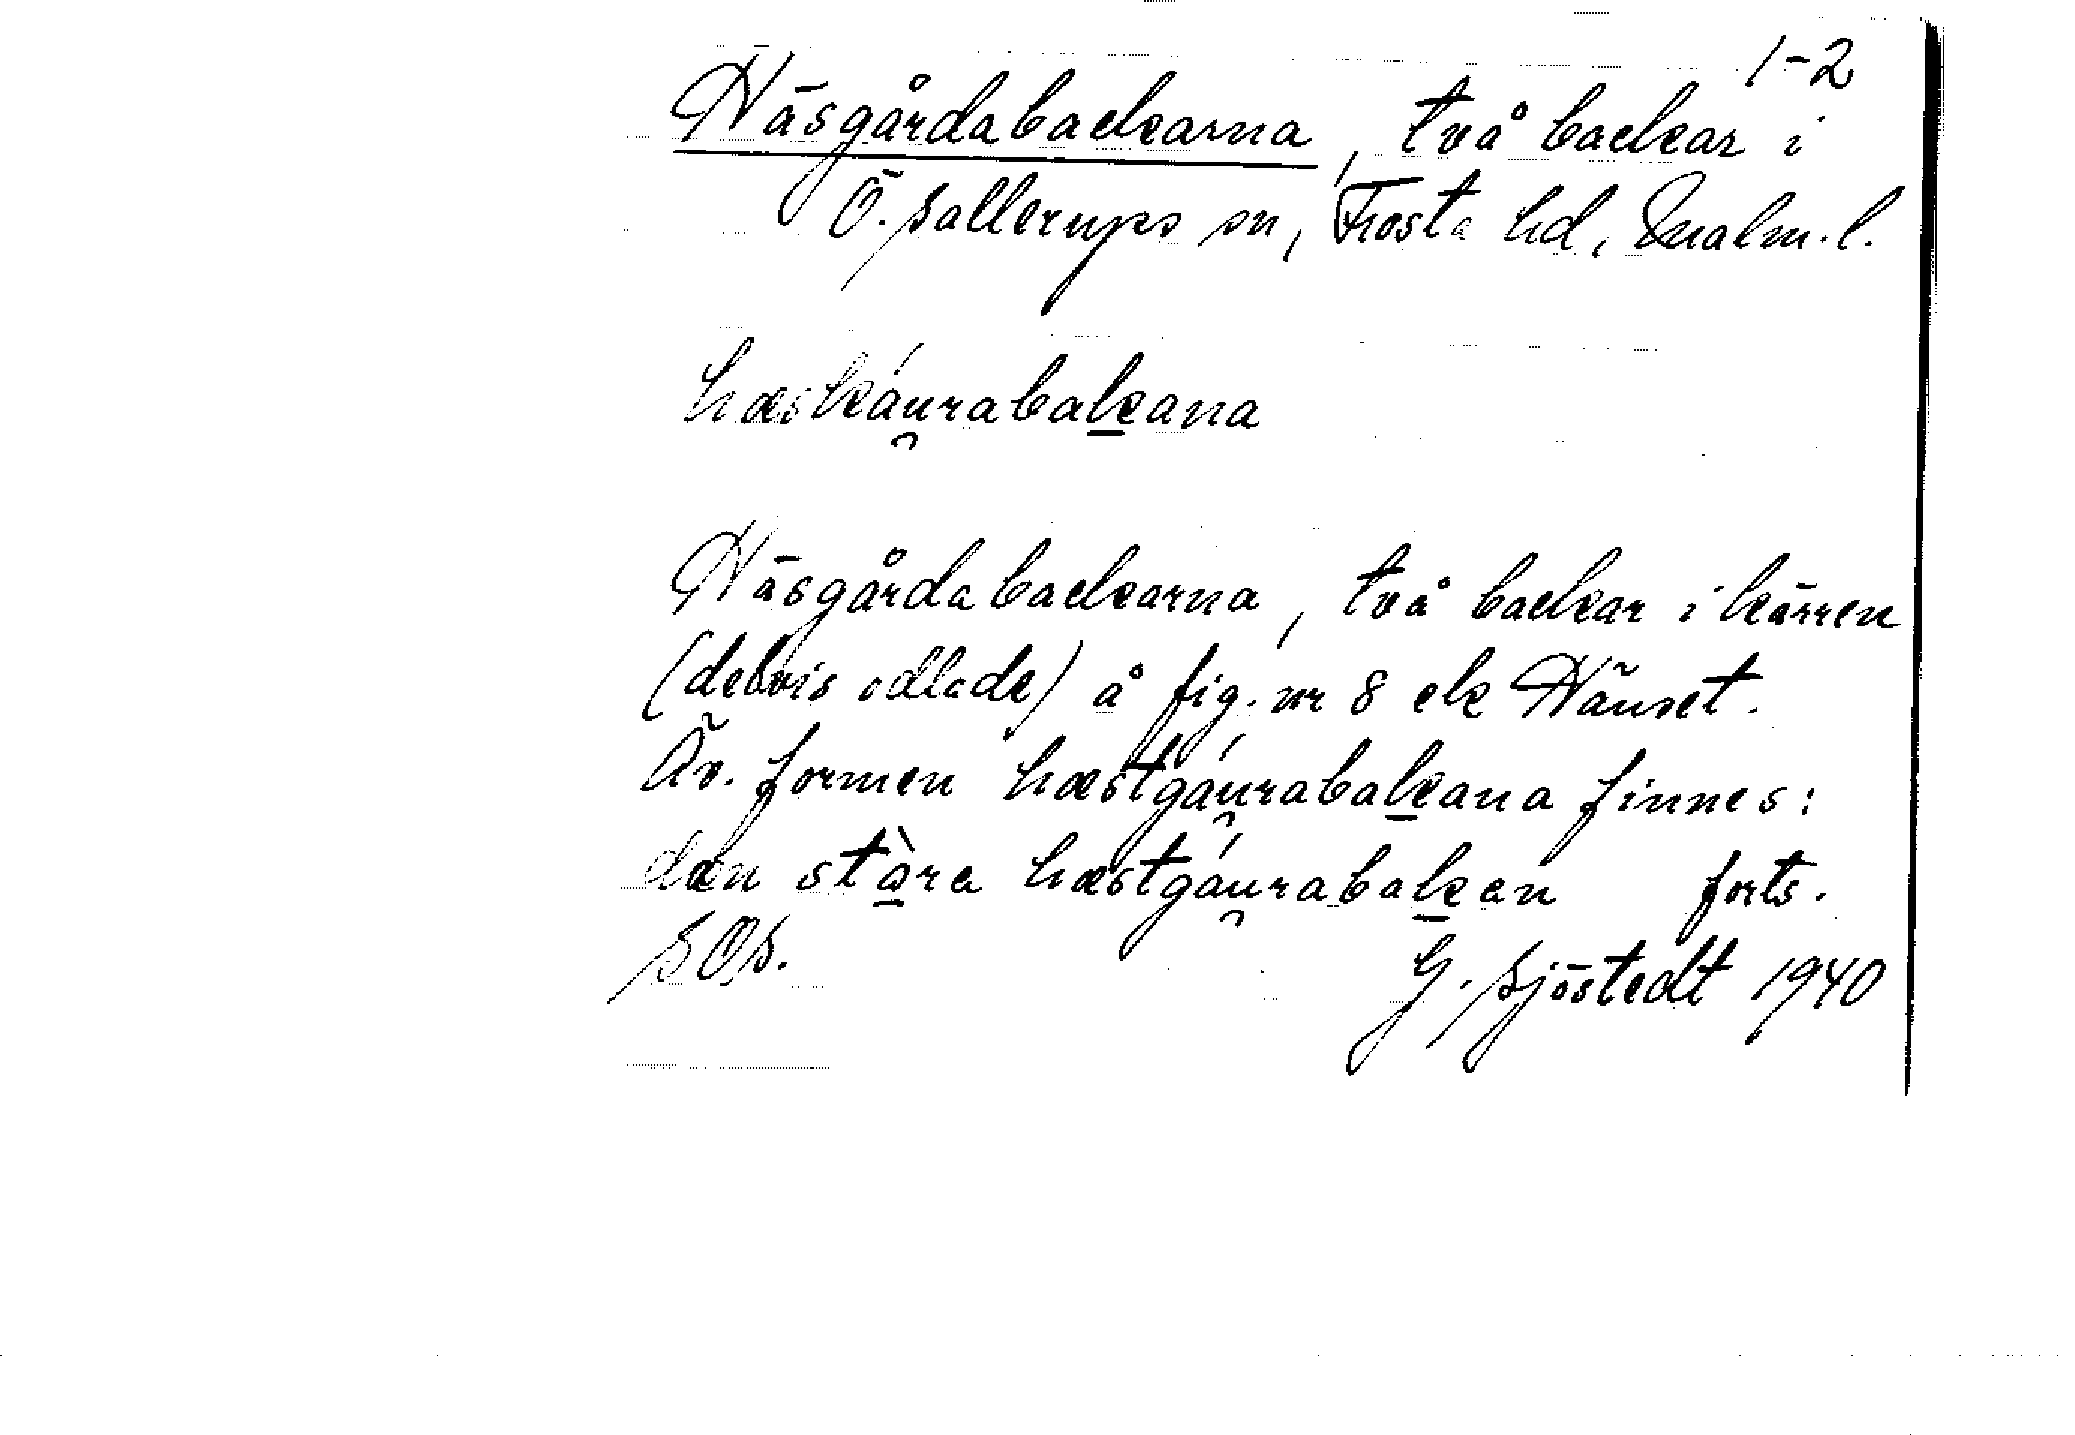 1-2
Häsgårdabackarna, två backar i
Ö. Sallerups sn, Frosta hd, Malm. l.
hæskáu̯rabak̲ana
Häsgårdabackarna, två backar i kärren
(delvis odlade) å fig. nr 8 ek Hänset.
Äv. formen hæstgáu̯rabak̲ana finnes:
dæn stò̲ra hæstgáu̯rabak̲an forts.
SOS.
G. Sjöstedt 1940